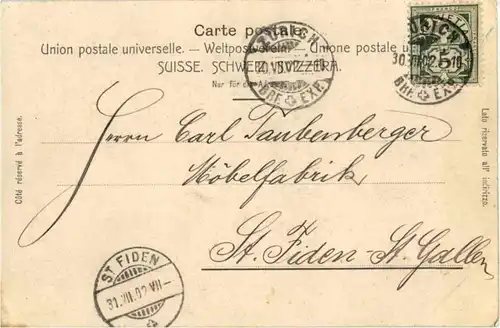 Carte postale.
Union postale universelle. — Weltpostverein. — Unione postale
SUISSE. SCHWEIZ. SVIZZERA.
Nur für die
ZÜRICH
30.VII.02.
BRF. EXP.
ZÜRICH
30.VII.02.
BRF. EXP.
HELVETIA
5
Herrn Carl Taubenberger
Möbelfabrik
St. Fiden-St. Gallen
Côté réservé à l'adresse.
Lato riservato all' indirizzo.
ST. FIDEN
31.VII.02.VII—